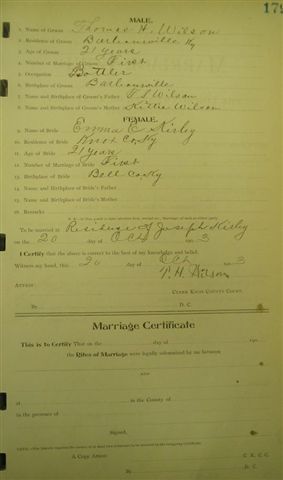 179
MALE.
1. Name of Groom Thomas H. Wilson
2. Residence of Groom Barbourville Ky
3. Age of Groom 21 years
4. Number of Marriage of Groom First
5. Occupation Bottler
6. Birthplace of Groom Barbourville
7. Name and Birthplace of Groom's Father T. S. Wilson
8. Name and Birthplace of Groom's Mother Kittie Wilson
FEMALE.
9. Name of Bride Emma C. Kirby
10. Residence of Bride Knox Co Ky
11. Age of Bride 21 years
12. Number of Marriage of Bride First
13. Birthplace of Bride Bell Co Ky
14. Name and Birthplace of Bride's Father
15. Name and Birthplace of Bride's Mother
16. Remarks
To be married at Residence of Joseph Kirby
on the 20 day of Oct 190 3
I Certify that the above is correct to the best of my knowledge and belief.
Witness my hand, this 20 day of Oct 190 3
T. H. Wilson
Attest:
Clerk Knox County Court.
By D. C.
Marriage Certificate
This is to Certify That on the day of 190
the Rites of Marriage were legally solemnized by me between
and
at in the County of
in the presence of
Signed,
A Copy Attest: C. K. C. C.
By D. C.